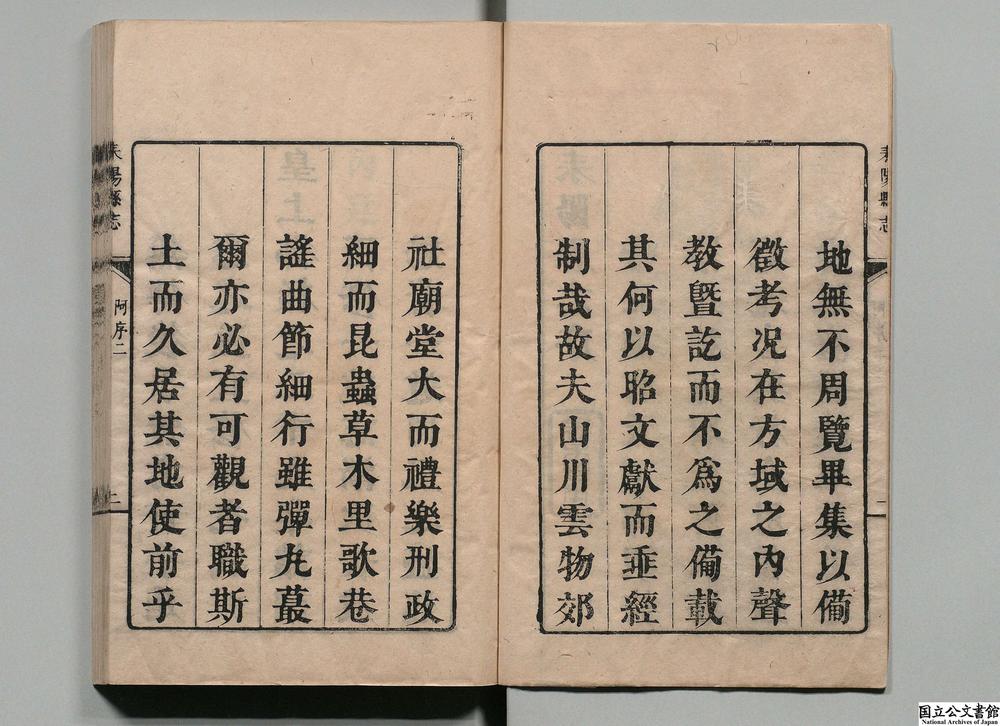 耒陽縣志
地無不周覽畢集以備
徵考况在方域之內聲
教暨訖而不爲之備載
其何以昭文獻而垂經
制哉故夫山川雲物郊
社廟堂大而禮樂刑政
細而昆蟲草木里歌巷
謠曲節細行雖彈丸蕞
爾亦必有可觀者職斯
土而久居其地使前乎
耒陽縣志
阿序二
上
国立公文書館
National Archives of Japan